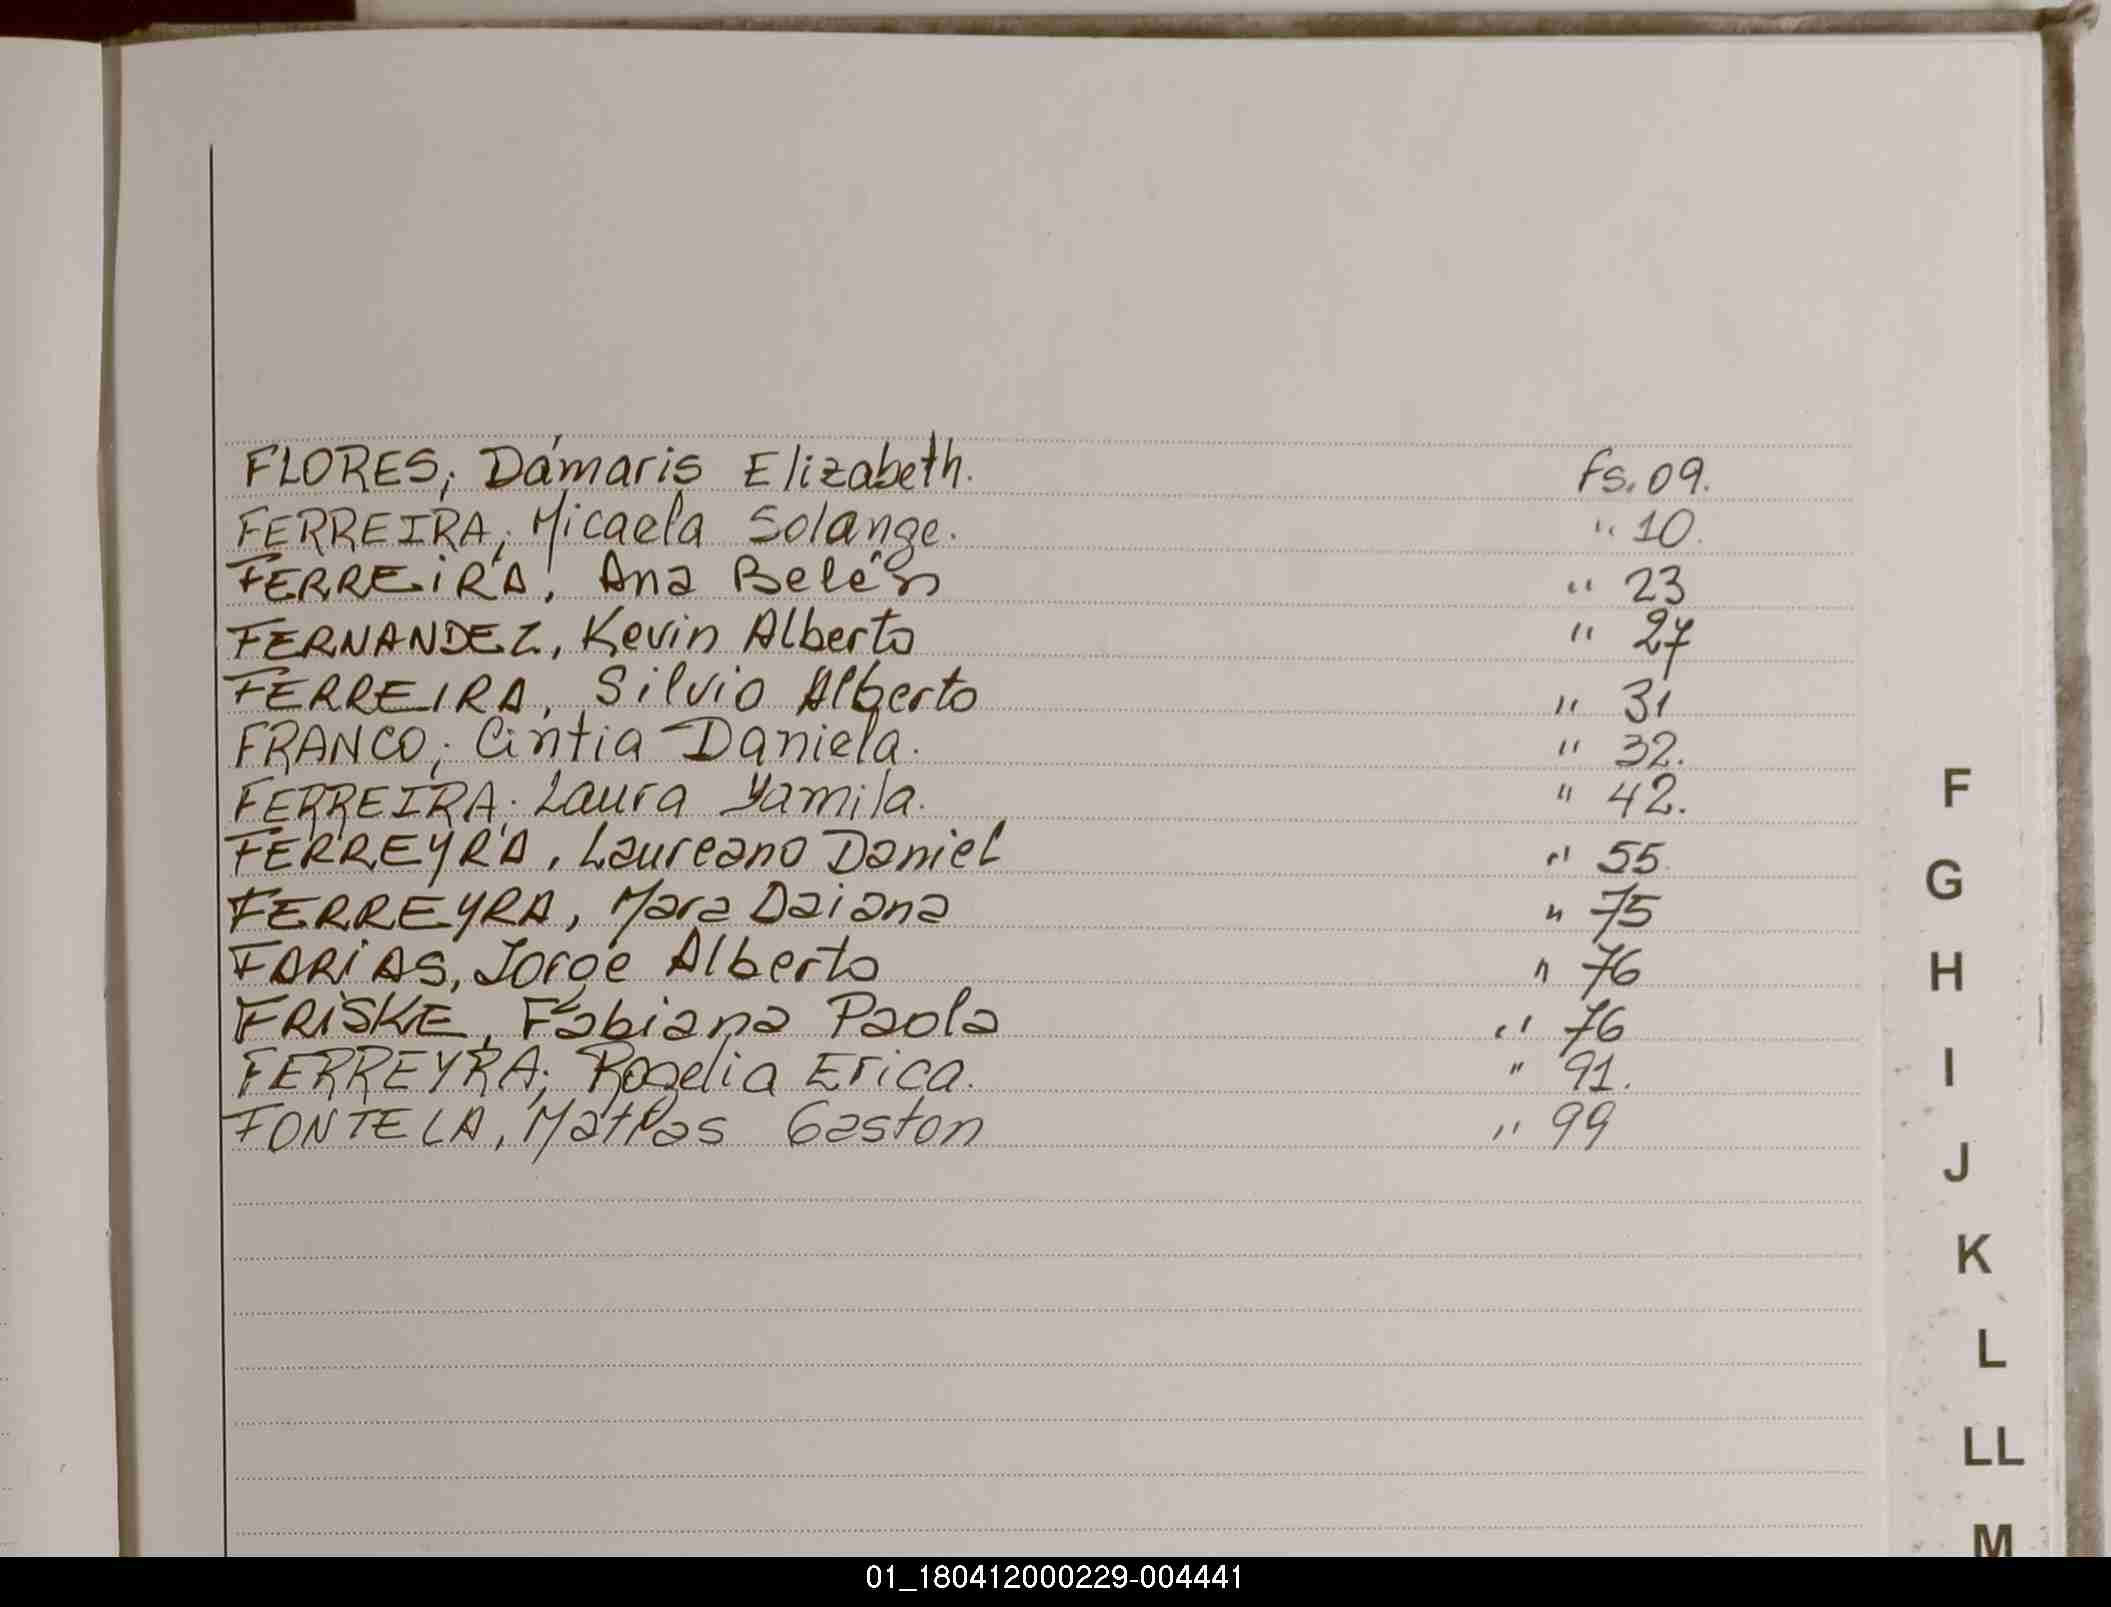 FLORES; Dámaris Elizabeth. fs. 09.
FERREIRA; Micaela Solange. " 10.
FERREIRA, Ana Belén " 23
FERNANDEZ, Kevin Alberto " 27
FERREIRA, Silvio Alberto " 31
FRANCO; Cintia Daniela. " 32.
FERREIRA; Laura Yamila. " 42.
FERREYRA, Laureano Daniel " 55
FERREYRA, Mara Daiana " 75
FARIAS, Jorge Alberto " 76
FRISKE, Fabiana Paola " 76
FERREYRA; Rogelia Erica. " 91.
FONTELA, Matías Gaston " 99
F
G
H
I
J
K
L
LL
M
01_180412000229-004441